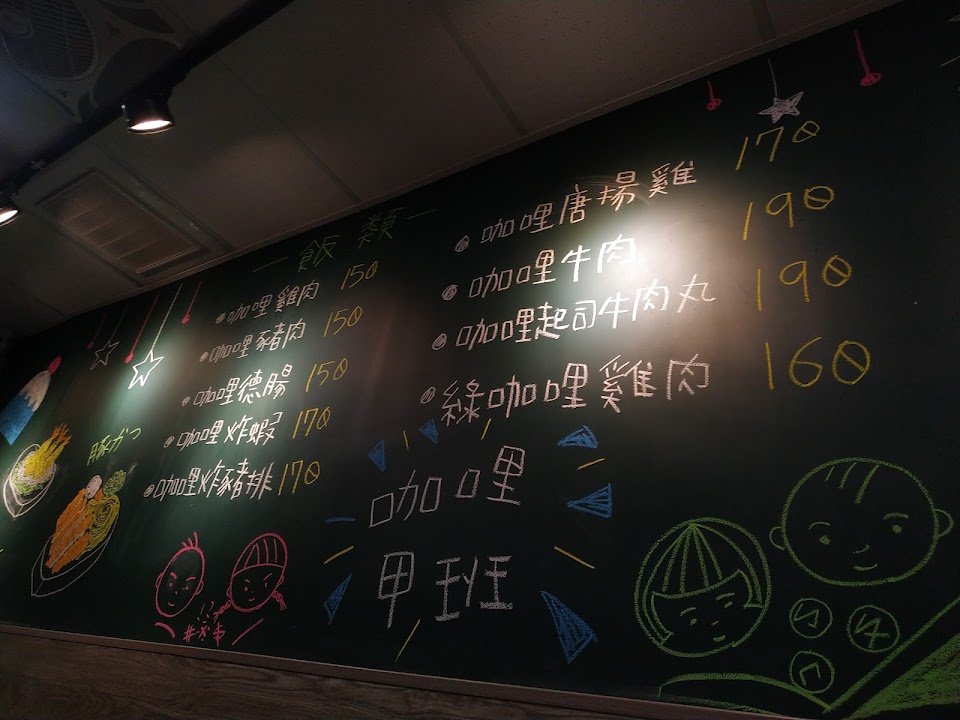 飯類
咖哩雞肉 150
咖哩豬肉 150
咖哩德腸 150
咖哩炸蝦 170
咖哩炸豬排 170
咖哩唐揚雞 170
咖哩牛肉 190
咖哩起司牛肉丸 190
綠咖哩雞肉 160
豚かつ
咖哩
甲班